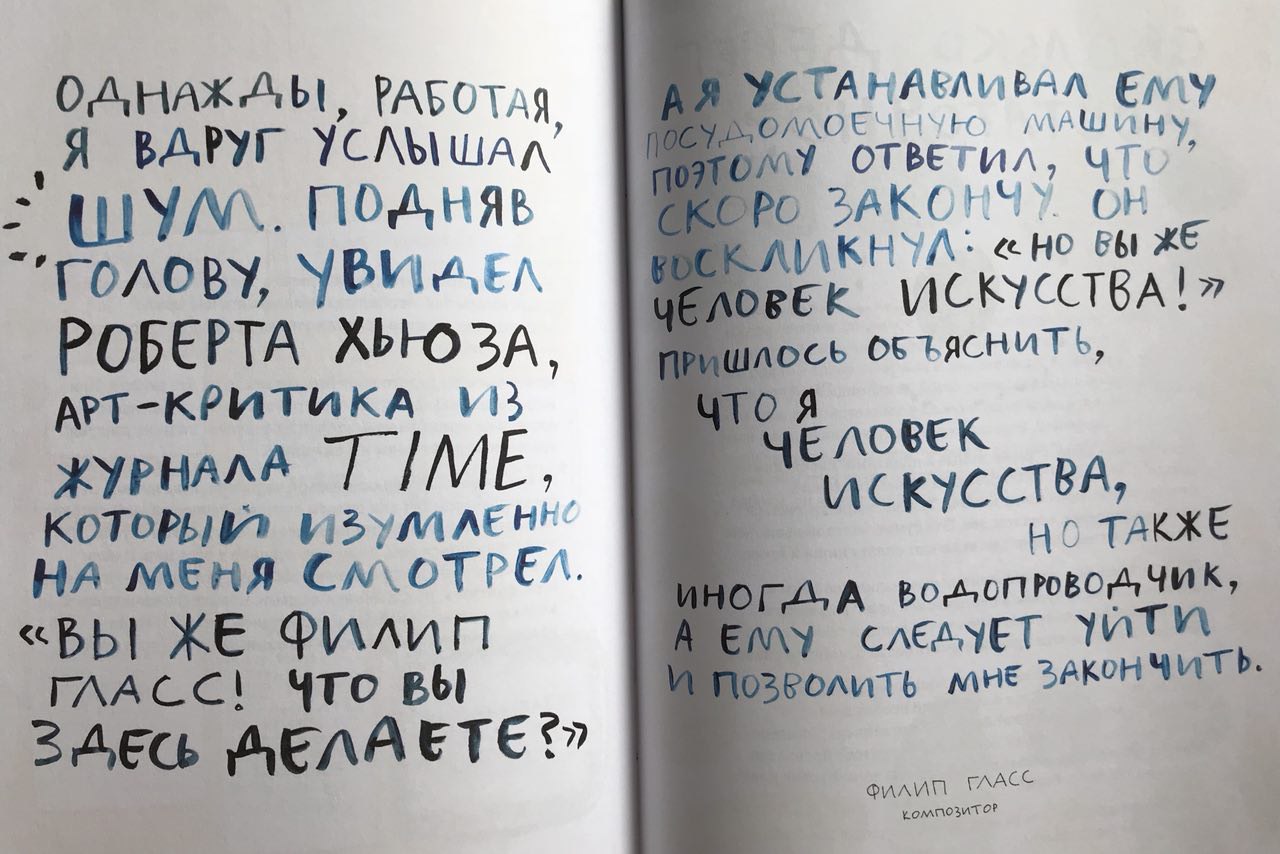 ОДНАЖДЫ, РАБОТАЯ,
Я ВДРУГ УСЛЫШАЛ
ШУМ. ПОДНЯВ
ГОЛОВУ, УВИДЕЛ
РОБЕРТА ХЬЮЗА,
АРТ-КРИТИКА ИЗ
ЖУРНАЛА TIME,
КОТОРЫЙ ИЗУМЛЕННО
НА МЕНЯ СМОТРЕЛ.
«ВЫ ЖЕ ФИЛИП
ГЛАСС! ЧТО ВЫ
ЗДЕСЬ ДЕЛАЕТЕ?»
А Я УСТАНАВЛИВАЛ ЕМУ
ПОСУДОМОЕЧНУЮ МАШИНУ,
ПОЭТОМУ ОТВЕТИЛ, ЧТО
СКОРО ЗАКОНЧУ. ОН
ВОСКЛИКНУЛ: «НО ВЫ ЖЕ
ЧЕЛОВЕК ИСКУССТВА!»
ПРИШЛОСЬ ОБЪЯСНИТЬ,
ЧТО Я
ЧЕЛОВЕК
ИСКУССТВА,
НО ТАКЖЕ
ИНОГДА ВОДОПРОВОДЧИК,
А ЕМУ СЛЕДУЕТ УЙТИ
И ПОЗВОЛИТЬ МНЕ ЗАКОНЧИТЬ.
ФИЛИП ГЛАСС
КОМПОЗИТОР